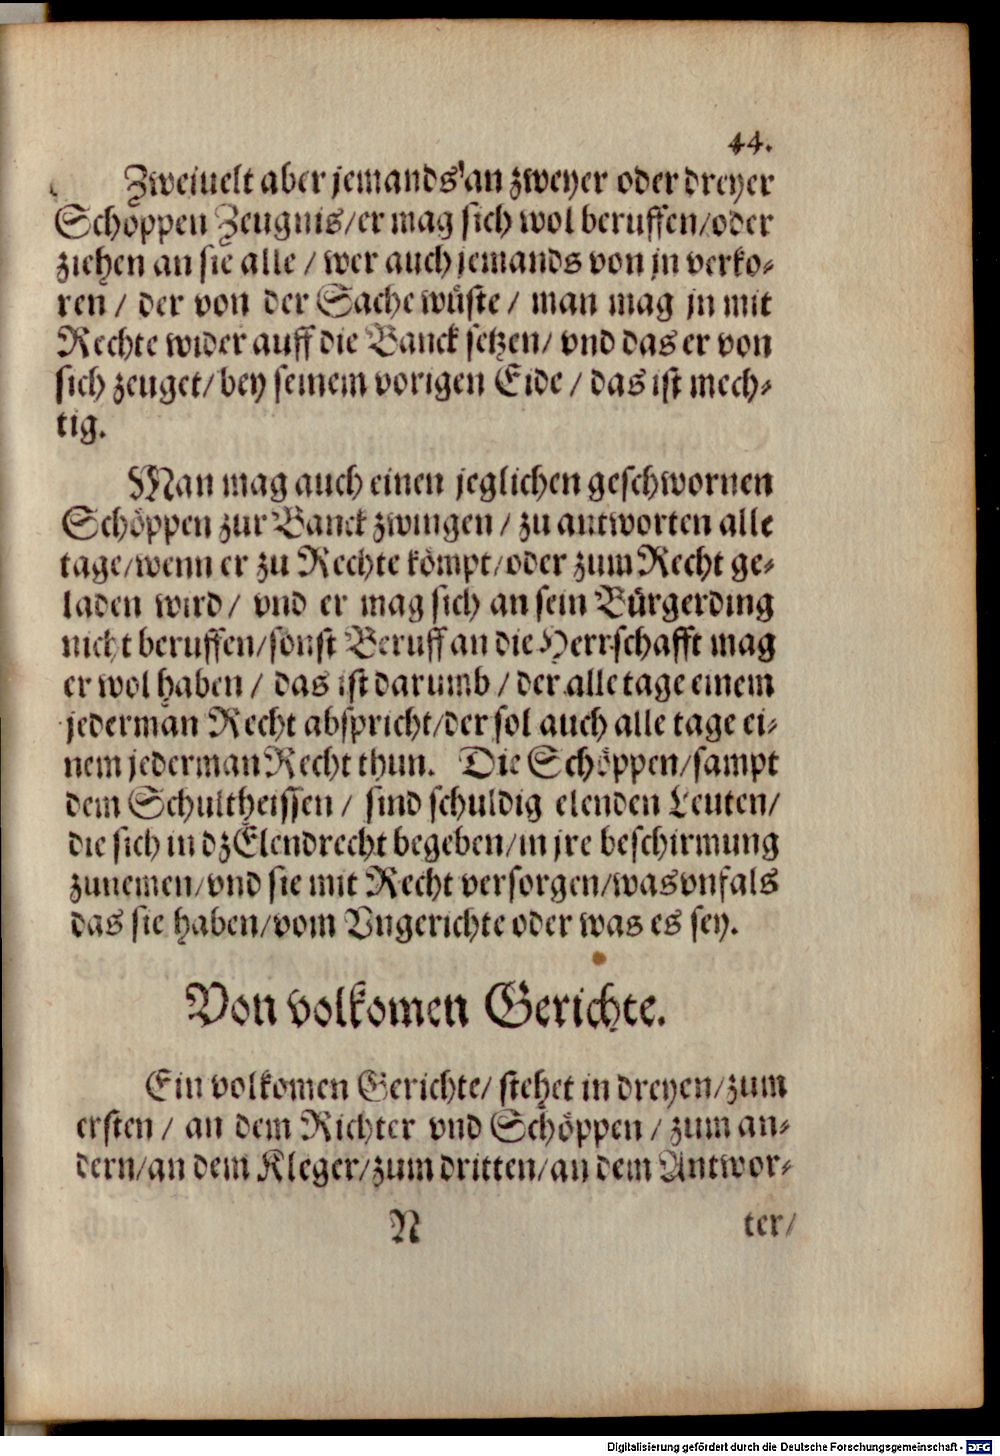 44.
Zweiuelt aber jemands an zweyer oder dreyer
Schöppen Zeugnis/er mag sich wol beruffen/oder
ziehen an sie alle / wer auch jemands von jn verko-
ren / der von der Sache wüste / man mag jn mit
Rechte wider auff die Banck setzen/ vnd das er von
sich zeuget/ bey seinem vorigen Eide / das ist mech-
tig.
Man mag auch einen jeglichen geschwornen
Schöppen zur Banck zwingen / zu antworten alle
tage/wenn er zu Rechte kömpt/oder zum Recht ge-
laden wird/ vnd er mag sich an sein Bürgerding
nicht beruffen/sonst Beruff an die Herrschafft mag
er wol haben / das ist darumb / der alle tage einem
jederman Recht abspricht/der sol auch alle tage ei-
nem jederman Recht thun. Die Schöppen/sampt
dem Schultheissen / sind schuldig elenden Leuten/
die sich in dz Elendrecht begeben/in jre beschirmung
zunemen/vnd sie mit Recht versorgen/was vnfals
das sie haben/vom Vngerichte oder was es sey.
Von volkomen Gerichte.
Ein volkomen Gerichte/ stehet in dreyen/zum
ersten / an dem Richter vnd Schöppen / zum an-
dern/an dem Kleger/zum dritten/an dem Antwor-
N ter/
Digitalisierung gefördert durch die Deutsche Forschungsgemeinschaft - DFG